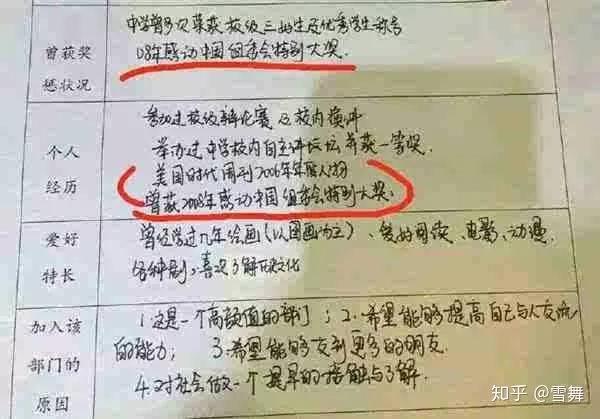 曾获奖
惩状况
中学曾多次荣获校级三好生及优秀学生称号
08年感动中国组委会特别大奖.
个人
经历
参加过校级辩论赛及校内模拟
举办过中学校内自主讲坛并获一等奖.
美国时代周刊2006年年度人物
曾获2008年感动中国组委会特别大奖.
爱好
特长
曾经学过几年绘画(以国画为主)、爱好阅读、电影、动漫
各种剧,喜欢了解文化
加入该
部门的
原因
1.这是一个高颜值的部门;2.希望能够提高自己与人交流
的能力; 3.希望能够交到更多的朋友.
4.对社会做一个提早的接触与了解.
知乎 @雪舞